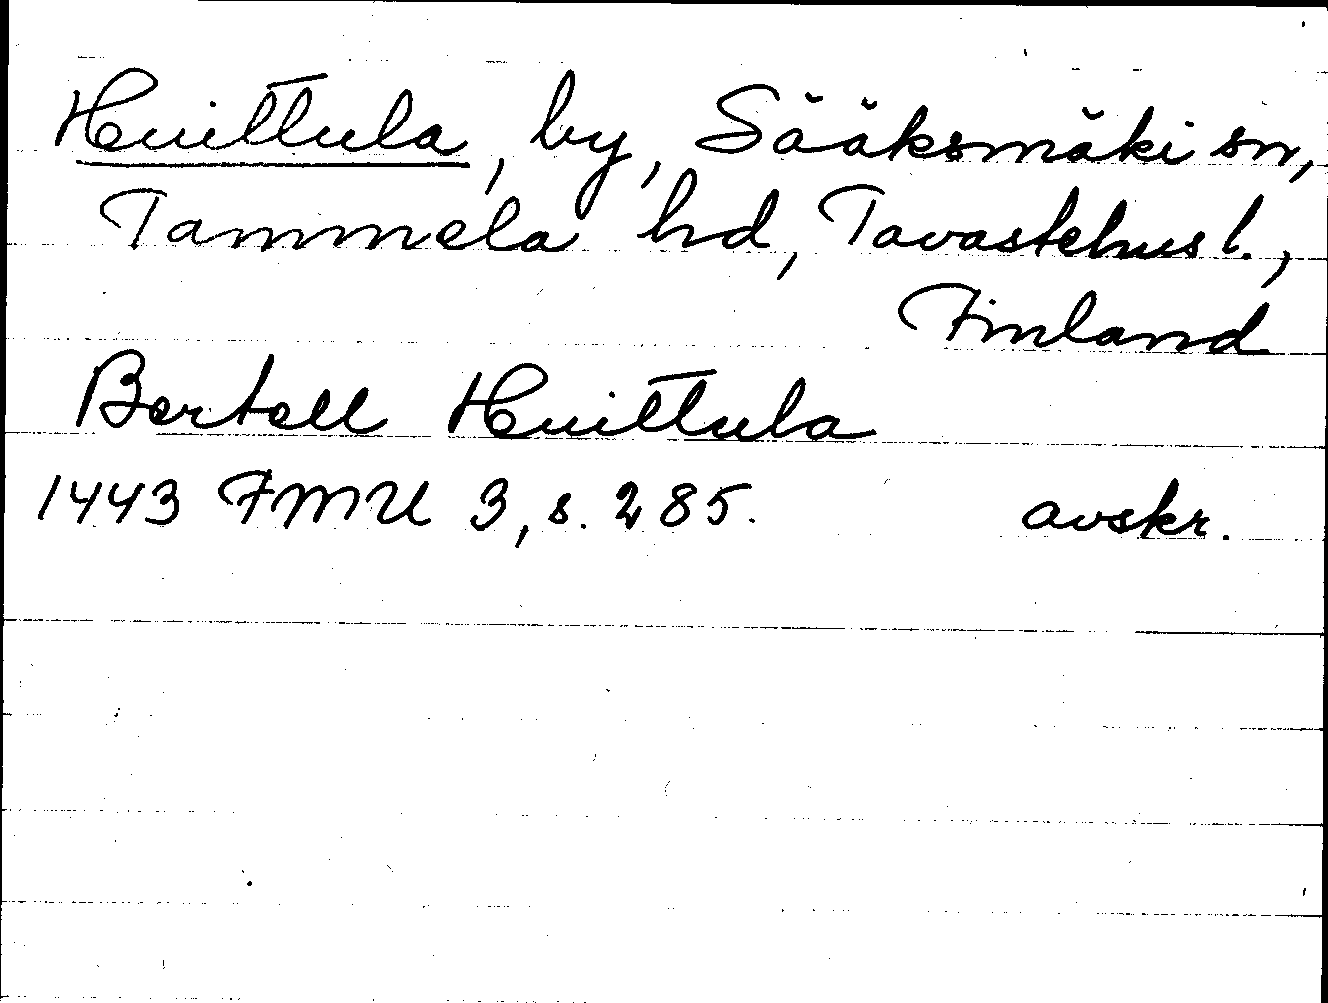 Huittula, by, Sääksmäki sn,
Tammela hd, Tavastehus l.,
Finland
Bertell Huittula
1443 FMU 3, s. 285. avskr.